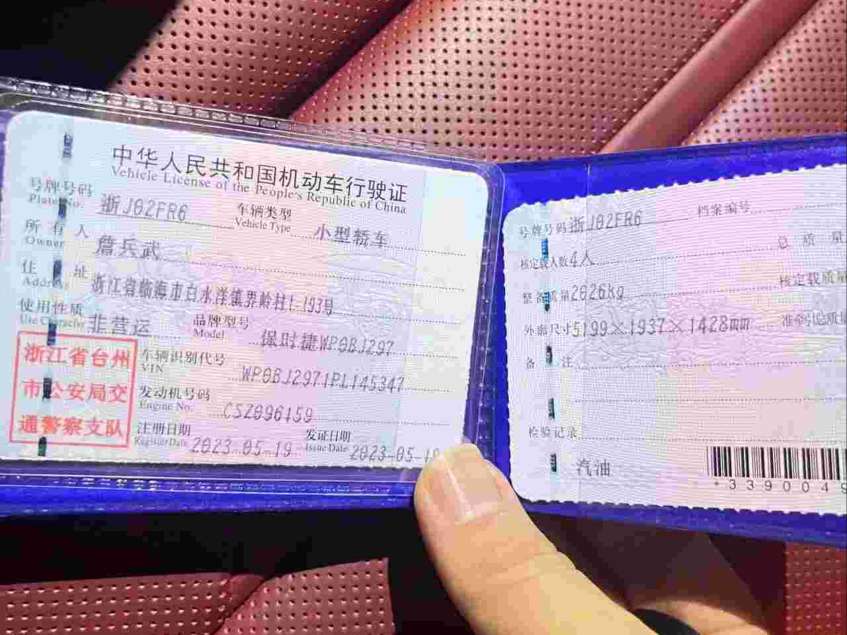 中华人民共和国机动车行驶证
Vehicle License of the People's Republic of China
号牌号码 浙J02FR6 车辆类型 小型轿车
Plate No. Vehicle Type
所有人 詹兵武
Owner
住址 浙江省临海市白水洋镇界岭村1-193号
Address
使用性质 非营运 品牌型号 保时捷WP0BJ297
Use Character Model
浙江省台州
市公安局交
通警察支队
车辆识别代号 WP0BJ2971PL145347
VIN
发动机号码 CSZ096159
Engine No.
注册日期 2023-05-19 发证日期 2023-05-
Register Date Issue Date
号牌号码 浙J02FR6 档案编号
核定载人数 4人 总质量
整备质量 2026kg 核定载质量
外廓尺寸 5199×1937×1428mm 准牵引总质
备注
检验记录
汽油
+339004